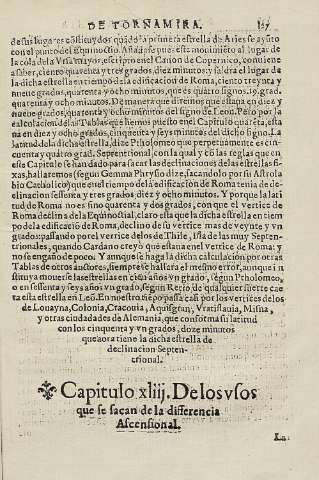 DE TORNAMIRA. 187
de sus lugares cõstituydos quãdo la primera estrella de Aries se ayusto
con el punto del Equinoctio. Añadase pues este mouimiẽto al lugar de
la cola de la Vrsa mayor, escripto en el Canon de Copernico, conuiene
a saber, ciento quarenta y tres grados, diez minutos: y saldra el lugar de
la dicha estrella en tiempo dela edificaciõ de Roma, ciento treynta y
nueue grados, quarenta y ocho minutos, que es quatro signos, 19. grad.
quarenta y ocho minutos. De manera que diremos que estaua en diez y
nueue grados, quarenta y ocho minutos del signo de Leon. Pero por la
calculacion de las Tablas que hemos puesto en el Capitulo cuarẽta, esta
ua en diez y ocho grados, cinquenta y seys minutos del dicho signo. La
latitud dela dicha estrella, dize Ptholomeo que perpetuamente es cin-
cuenta y quatro grad. Septentrional, con la qual y cõ las reglas que en
esse Capitulo se han dado para sacar las declinaciones delas estrellas fi-
xas, hallaremos (segun Gemma Phrysio dize, sacandolo por su Astrola
bio Catholico) que en el tiempo dela edificacion de Roma tenia de de-
clinacion sessenta y tres grados, diez y ocho minutos. Y porque la lati-
tud de Roma no es sino quarenta y dos grados, con que el vertice de
Roma declina dela Equinoctial, claro esta que la dicha estrella en tiem
po dela edificaciõ de Roma, declino de su vertice mas de veynte y vn
grados: passando por el vertice delos de Thile, isla de las muy Septen-
trionales, quando Cardano creyo que estaua en el vertice de Roma: y
no se engaño de poco. Y aunque se haga la dicha calculacion por otras
Tablas de otros auctores, siempre se hallara el mesmo error, aunque in
stituya mouerse las estrellas en ciẽ años vn grado, segun Ptholomeo,
o en sessenta y seys años vn grado, segun Rezio, de qualquier suerte cae
ra esta estrella en Leõ. En nuestro tiẽpo passa casi por los vertices delos
de Louayna, Colonia, Cracouia, Aquisgran, Vratislauia, Misna,
y otras ciudadades de Alemania, que conforma su latitud
con los cinquenta y vn grados, doze minutos
que aora tiene la dicha estrella de
declinacion Septen-
trional.
Capitulo xliij. De los vsos
que se sacan de la differencia
Ascensional.
La